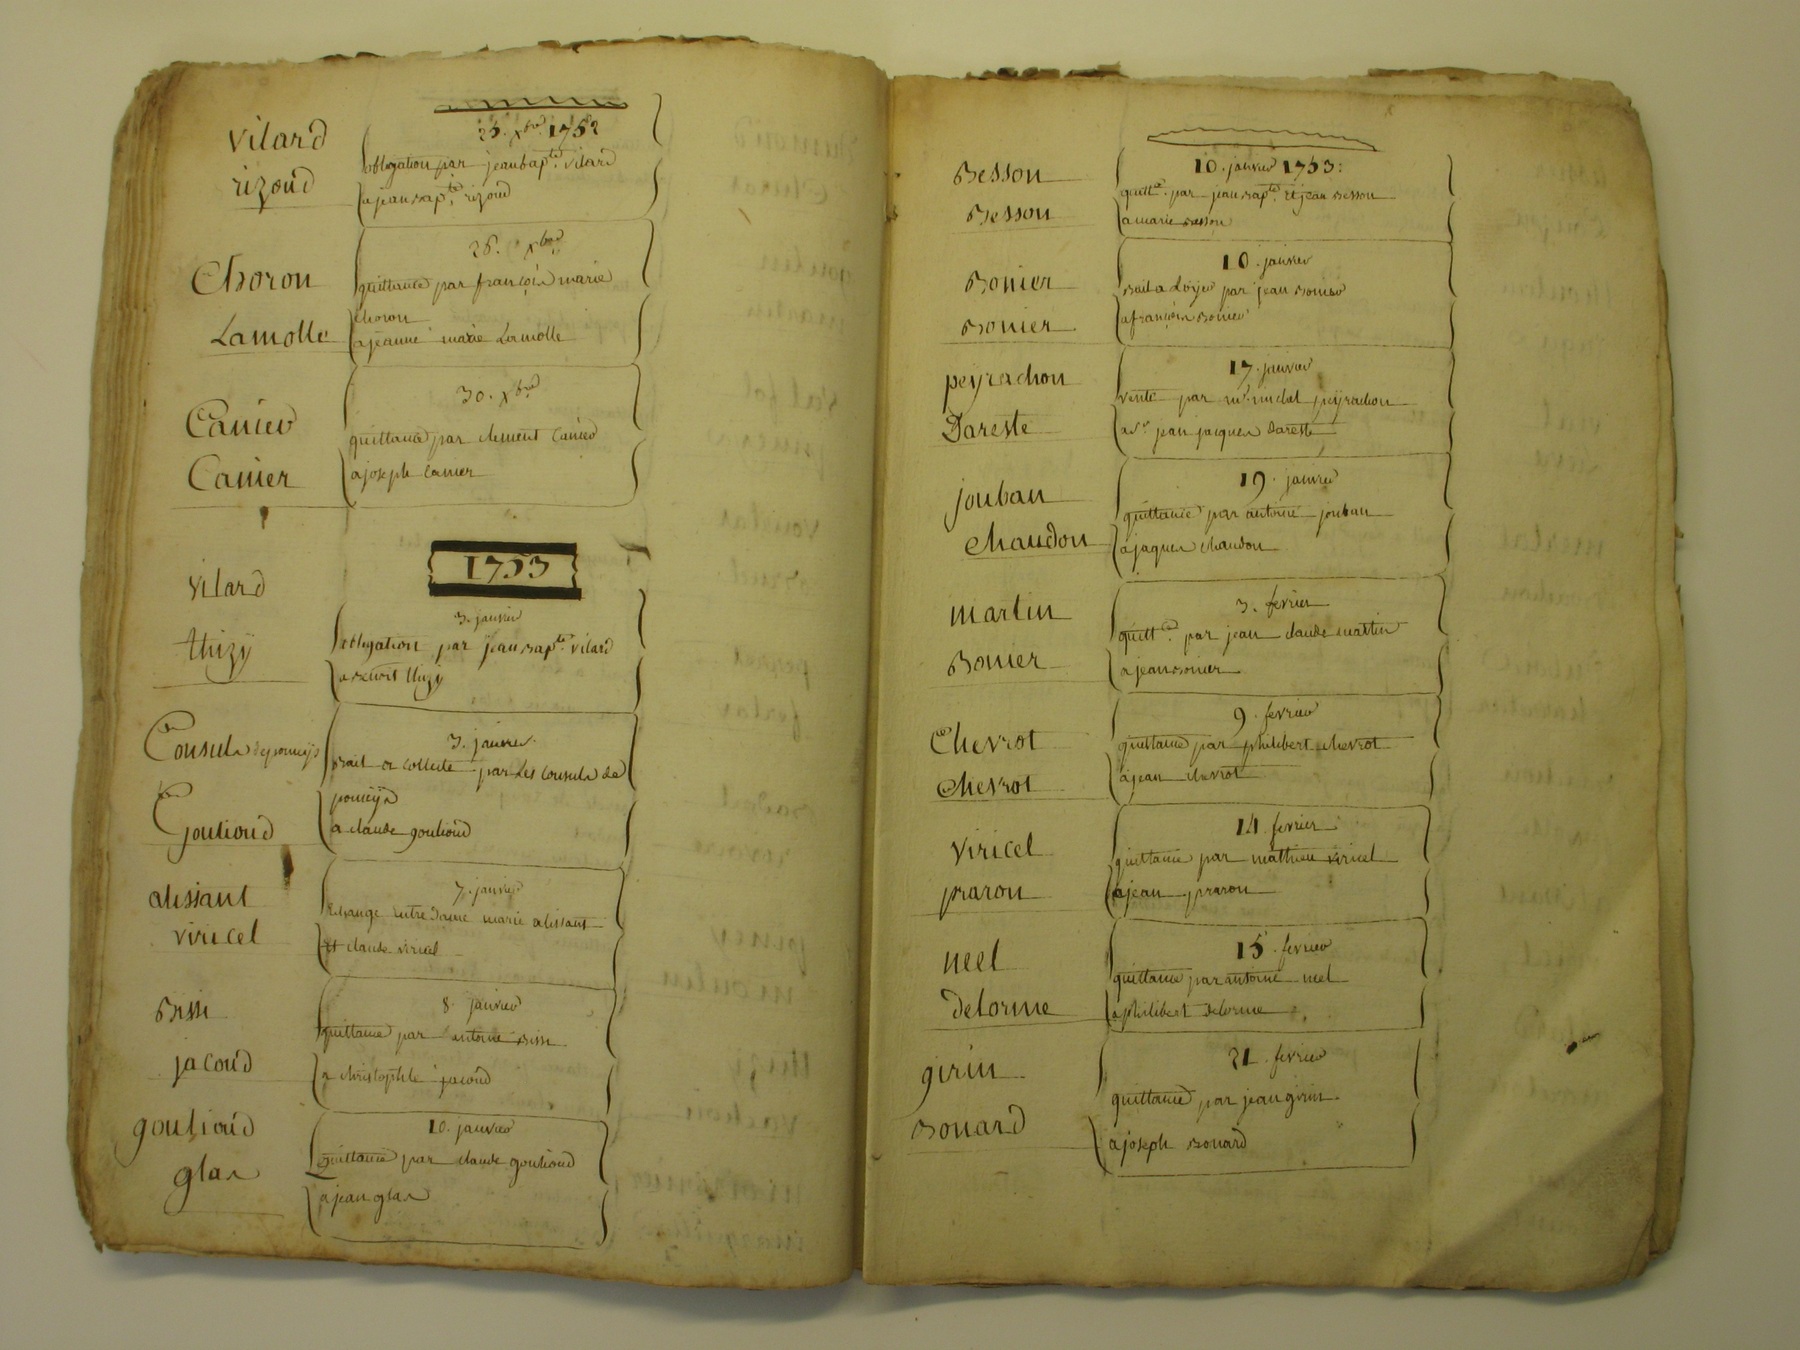 25. Xbre 1752
Vilard
obligation par jean bapte. vilard
rizoud
a jean bapte. rizoud
26. Xbre
Choron
quittance par françois marie
choron
Lamolle
a jeanne marie Lamolle
30. Xbre
Canier
quittance par clement Canier
Canier
a joseph Canier
1753
Vilard
3. janvier
obligation par jean bapte. vilard
thizy
a benoit thizy
Consuls de pomeys
3. janvier
bail de collecte par Les Consuls de
pomeys
Goutioud
a claude goutioud
7. janvier
alissant
Echange entre Dame marie alissant
viricel
et claude viricel
8. janvier
Bissi
quittance par antoine Bissi
jacoud
a christophle jacoud
10. janvier
goutioud
quittance par claude goutioud
glas
a jean glas
10. janvier 1753:
Besson
quitte. par jean bapte. et jean Besson
Besson
a marie Besson
10. janvier
Bonier
Bail a Loyer par jean Bonier
Bonier
a françois Bonier
17. janvier
peyrachon
vente par me. michel peyrachon
Dareste
a sr. jean jacques Dareste
19. janvier
jouban
quittance par antoine jouban
Chaudon
a jaques chaudon
3. fevrier
martin
quitte. par jean claude martin
Bonier
a jean Bonier
9. fevrier
Chevrot
quittance par philibert chevrot
Chevrot
a jean chevrot
14. fevrier
Viricel
quittance par mathieu viricel
praron
a jean praron
15. fevrier
neel
quittance par antoine neel
Delorme
a philibert Delorme
21. fevrier
girin
quittance par jean girin
Bonard
a joseph Bonard